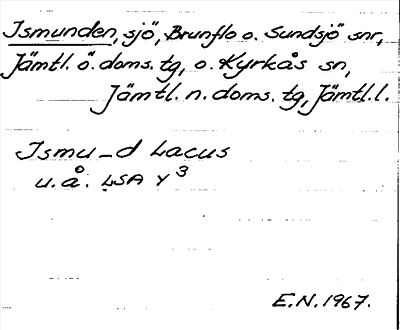 Ismunden, sjö, Brunflo o. Sundsjö snr,
Jämtl. ö. doms. tg, o. Kyrkås sn,
Jämtl. n. doms. tg, Jämtl. l.
Ismu_d Lacus
u. å. LSA Y 3
E.N. 1967.